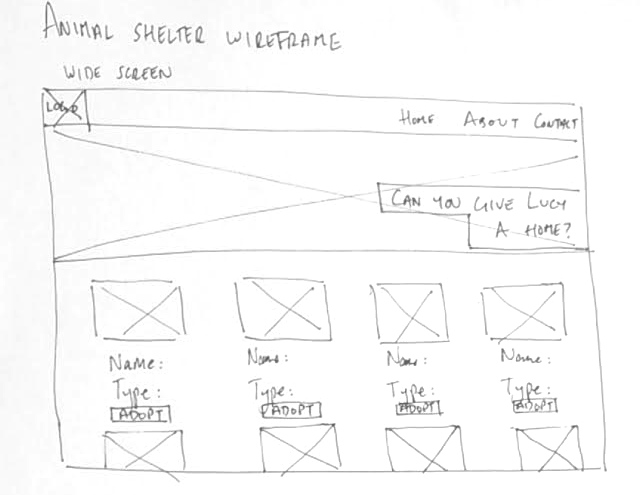 ANIMAL SHELTER WIREFRAME
WIDE SCREEN
LOGO
HOME ABOUT CONTACT
CAN YOU GIVE LUCY
A HOME?
Name: Name: Name: Name:
Type: Type: Type: Type:
ADOPT ADOPT ADOPT ADOPT